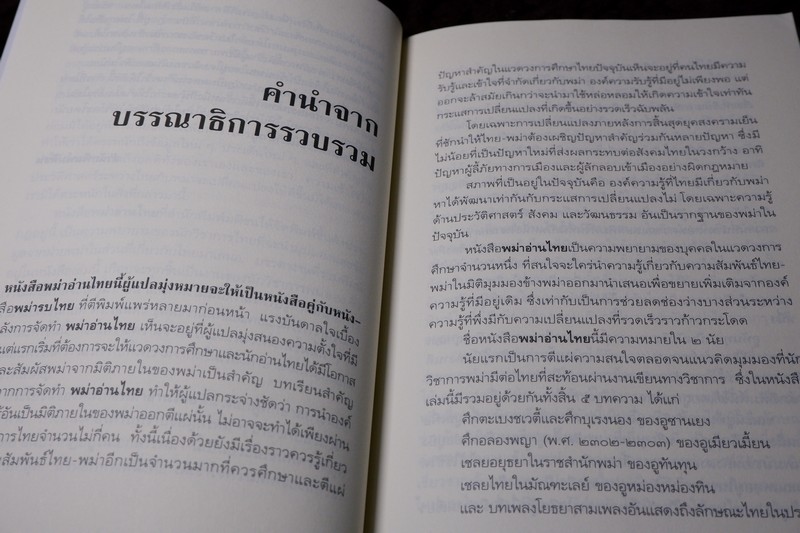 คำนำจาก
บรรณาธิการรวบรวม
หนังสือพม่าอ่านไทยนี้ผู้แปลมุ่งหมายจะให้เป็นหนังสือคู่กับหนัง-
สือพม่ารบไทย ที่ตีพิมพ์แพร่หลายมาก่อนหน้า แรงบันดาลใจเบื้อง
ลังการจัดทำ พม่าอ่านไทย เห็นจะอยู่ที่ผู้แปลมุ่งสนองความตั้งใจที่มี
แต่แรกเริ่มที่ต้องการจะให้แวดวงการศึกษาและนักอ่านไทยได้มีโอกาส
และสัมผัสพม่าจากมิติภายในของพม่าเป็นสำคัญ บทเรียนสำคัญ
จากการจัดทำ พม่าอ่านไทย ทำให้ผู้แปลกระจ่างชัดว่า การนำองค์
อันเป็นมิติภายในของพม่าออกตีแผ่นั้น ไม่อาจจะทำได้เพียงผ่าน
การไทยจำนวนไม่กี่คน ทั้งนี้เนื่องด้วยยังมีเรื่องราวควรรู้เกี่ยว
สัมพันธ์ไทย-พม่าอีกเป็นจำนวนมากที่ควรศึกษาและตีแผ่
ปัญหาสำคัญในแวดวงการศึกษาไทยปัจจุบันเห็นจะอยู่ที่คนไทยมีความ
รับรู้และเข้าใจที่จำกัดเกี่ยวกับพม่า องค์ความรับรู้ที่มีอยู่ไม่เพียงพอ แต่
ออกจะล้าสมัยเกินกว่าจะนำมาใช้หล่อหลอมให้เกิดความเข้าใจเท่าทัน
กระแสการเปลี่ยนแปลงที่เกิดขึ้นอย่างรวดเร็วฉับพลัน
โดยเฉพาะการเปลี่ยนแปลงภายหลังการสิ้นสุดยุคสงครามเย็น
ที่ชักนำให้ไทย-พม่าต้องเผชิญปัญหาสำคัญร่วมกันหลายปัญหา ซึ่งมี
ไม่น้อยที่เป็นปัญหาใหม่ที่ส่งผลกระทบต่อสังคมไทยในวงกว้าง อาทิ
ปัญหาผู้ลี้ภัยทางการเมืองและผู้ลักลอบเข้าเมืองอย่างผิดกฎหมาย
สภาพที่เป็นอยู่ในปัจจุบันคือ องค์ความรู้ที่ไทยมีเกี่ยวกับพม่า
หาได้พัฒนาเท่ากันกับกระแสการเปลี่ยนแปลงไม่ โดยเฉพาะความรู้
ด้านประวัติศาสตร์ สังคม และวัฒนธรรม อันเป็นรากฐานของพม่าใน
ปัจจุบัน
หนังสือพม่าอ่านไทยเป็นความพยายามของบุคคลในแวดวงการ
ศึกษาจำนวนหนึ่ง ที่สนใจจะใคร่นำความรู้เกี่ยวกับความสัมพันธ์ไทย-
พม่าในมิติมุมมองข้างพม่าออกมานำเสนอเพื่อขยายเพิ่มเติมจากองค์
ความรู้ที่มีอยู่เดิม ซึ่งเท่ากับเป็นการช่วยลดช่องว่างบางส่วนระหว่าง
ความรู้ที่พึ่งมีกับความเปลี่ยนแปลงที่รวดเร็วราวก้าวกระโดด
ชื่อหนังสือพม่าอ่านไทยนี้มีความหมายใน ๒ นัย
นัยแรกเป็นการตีแผ่ความสนใจตลอดจนแนวคิดมุมมองที่นัก
วิชาการพม่ามีต่อไทยที่สะท้อนผ่านงานเขียนทางวิชาการ ซึ่งในหนังสือ
เล่มนี้มีรวมอยู่ด้วยกันทั้งสิ้น ๕ บทความ ได้แก่
ศึกตะเบงชเวตี้และศึกบุเรงนอง ของอูซานเยง
ศึกอลองพญา (พ.ศ. ๒๓๐๒-๒๓๐๓) ของอูเมียวเมี้ยน
เชลยอยุธยาในราชสำนักพม่า ของอูทันทุน
เชลยไทยในมัณฑะเลย์ ของอูหม่องหม่องทิน
และ บทเพลงโยธยาสามเพลงอันแสดงถึงลักษณะไทยในประ